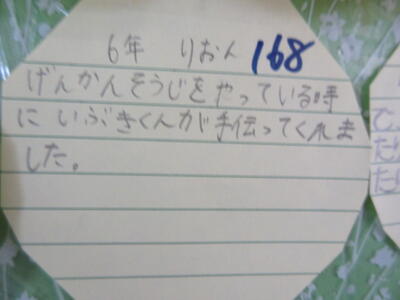 6年 りおん 168
げんかんそうじをやっている時
にいぶきくんが手伝ってくれま
した。
で、
たり
たし